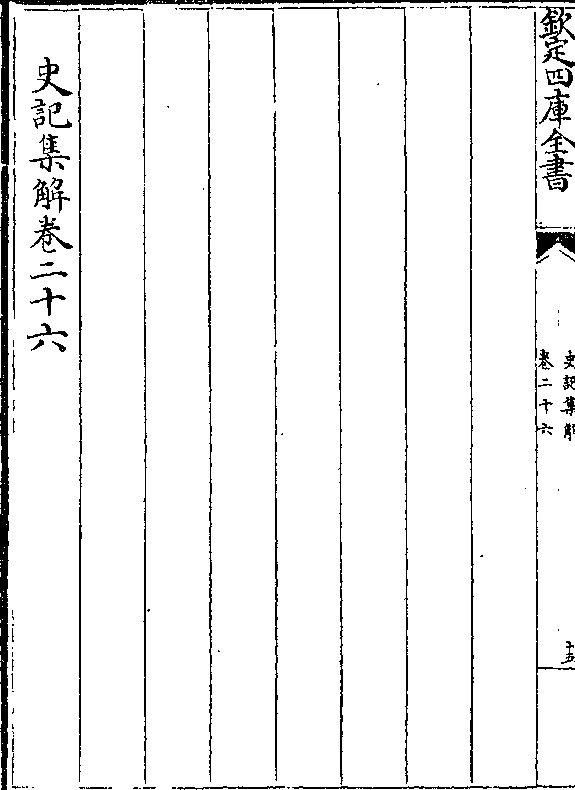 欽定四庫全書
史記集解
卷二十六
十五
史記集解卷二十六